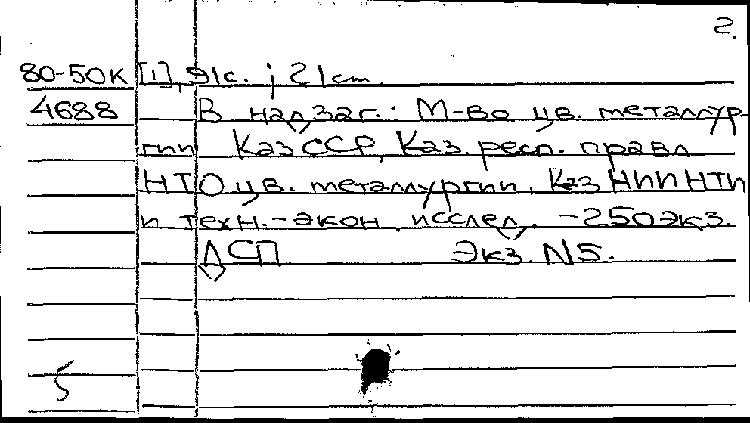 2.
80-50К [1], 91с. ; 21см.
4688 В надзаг.: М-во цв. металлур-
гии КазССР, Каз. респ. правл
НТО цв. металлургии, КазНИИНТИ
и техн.-экон. исслед. -250экз.
ДСП Экз. N5.
5